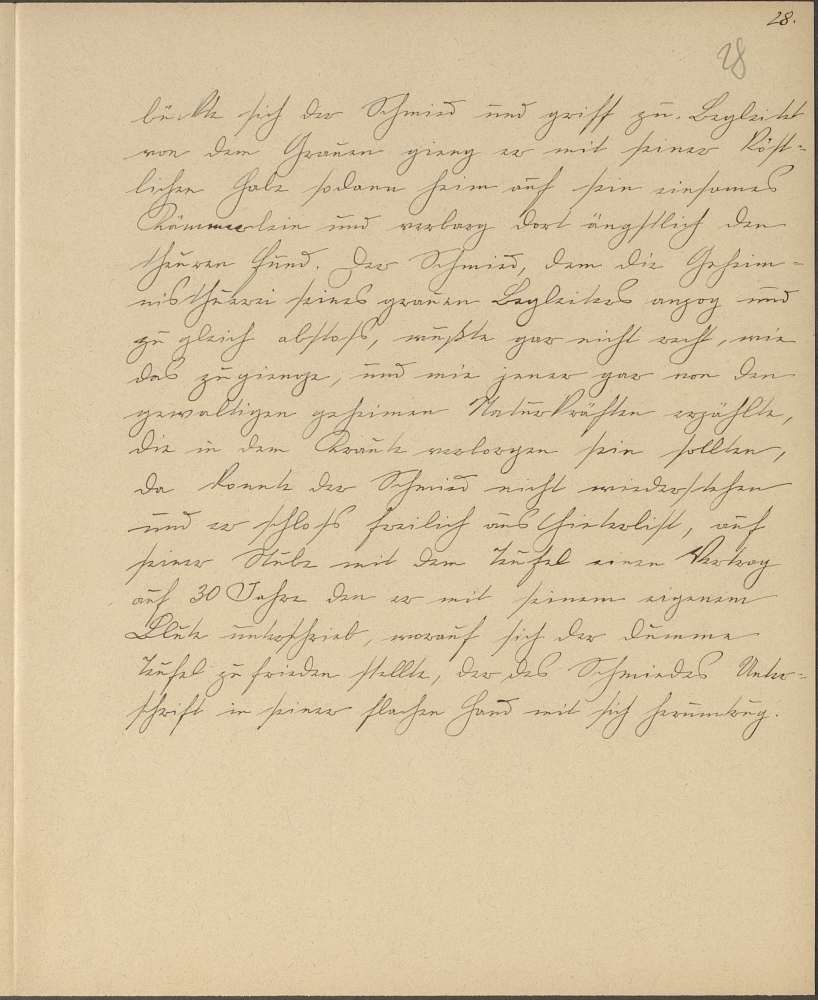 28.
28
bückte sich der Schmied und griff zu. Begleitet
von dem Grauen gieng er mit seiner köst-
lichen Habe sodann heim auf sein einsames
Kämmerlein und verbarg dort ängstlich den
theuren Fund. Der Schmied, dem die Geheim-
nisthuerei seines grauen Begleiters anzog und
zu gleich abstoss, wußte gar nicht recht, wie
das zugienge, und wie jener gar von den
gewaltigen geheimen Naturkräften erzählte,
die in dem Kraute verborgen sein sollten,
da konnte der Schmied nicht wiederstehen
und er schloss freilich aus Hinterlist, auf
seiner Stube mit dem Teufel einen Vertrag
auf 30 Jahre den er mit seinem eigenem
Blute unterschrieb, worauf sich der dumme
Teufel zu frieden stellte, der des Schmiedes Unter-
schrift in seiner flachen Hand mit sich herumtrug.